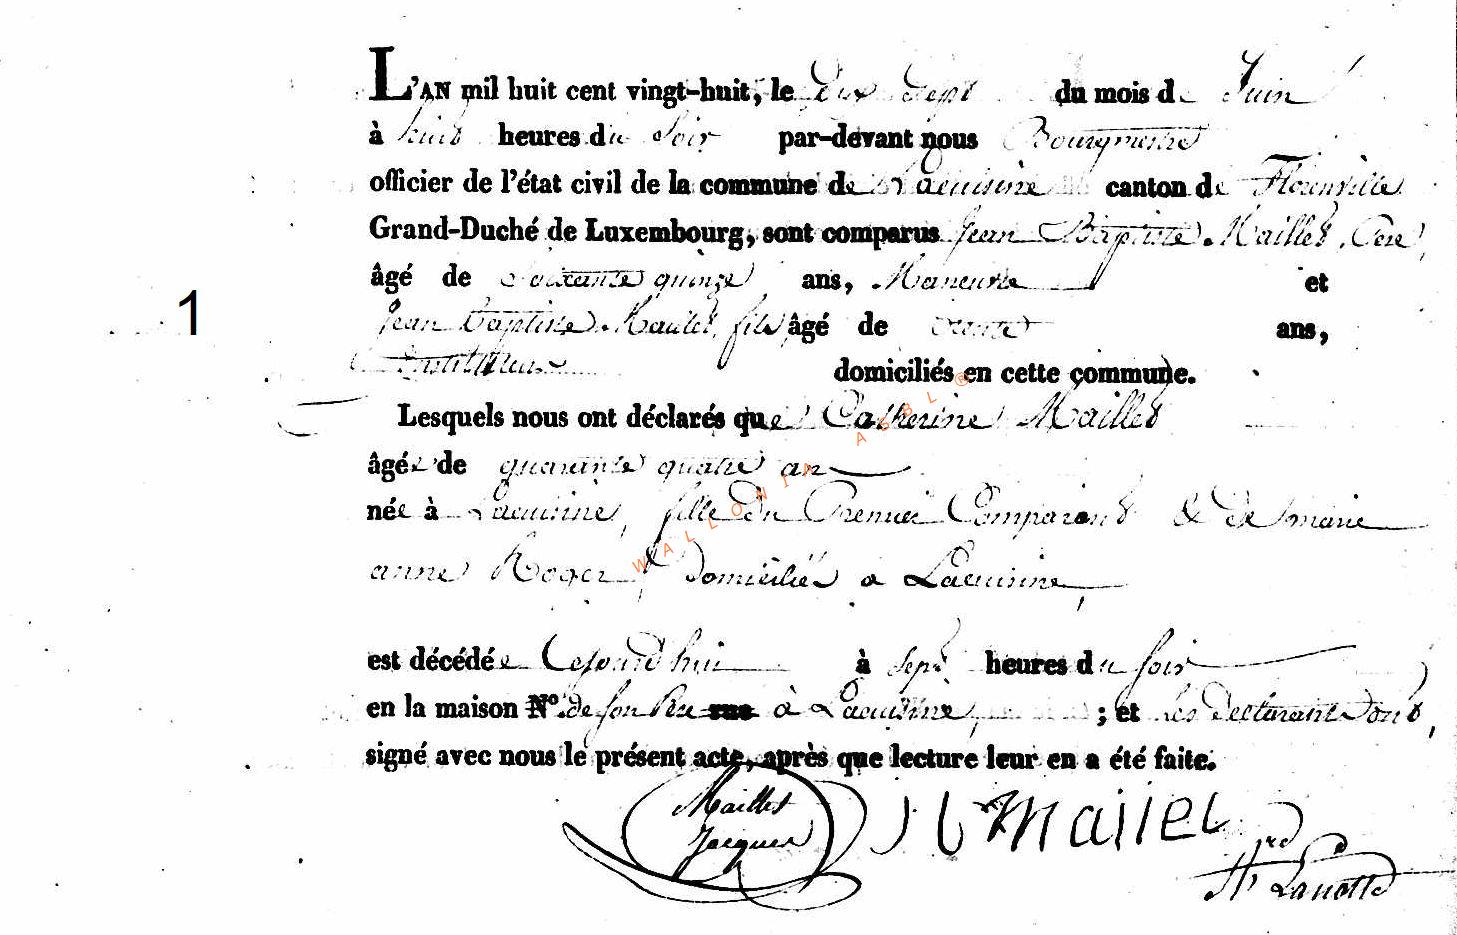 L'AN mil huit cent vingt-huit, le dix sept du mois de Juin
à huit heures du Soir par-devant nous Bourgmestre
officier de l'état civil de la commune de Lacuisine canton de Florenville
Grand-Duché de Luxembourg, sont comparus Jean Baptiste Maillet, Père,
âgé de Soixante quinze ans, Maneuvre et
Jean Baptiste Maillet, fils âgé de trente ans,
1
Instituteur domiciliés en cette commune.
Lesquels nous ont déclarés que Catherine Maillet
âgée de quarante quatre an
née à Lacuisine, fille du Premier Comparant & de marie
anne Roger, domiciliés a Lacuisine,
est décédée Cejourd'hui à Sept heures du soir
en la maison N.º de son Père rue à Lacuisine, ; et les declarants ont,
signé avec nous le présent acte, après que lecture leur en a été faite.
Maillet
Jacques
Maillet
Lanotte
WALLONIA ASBL ®